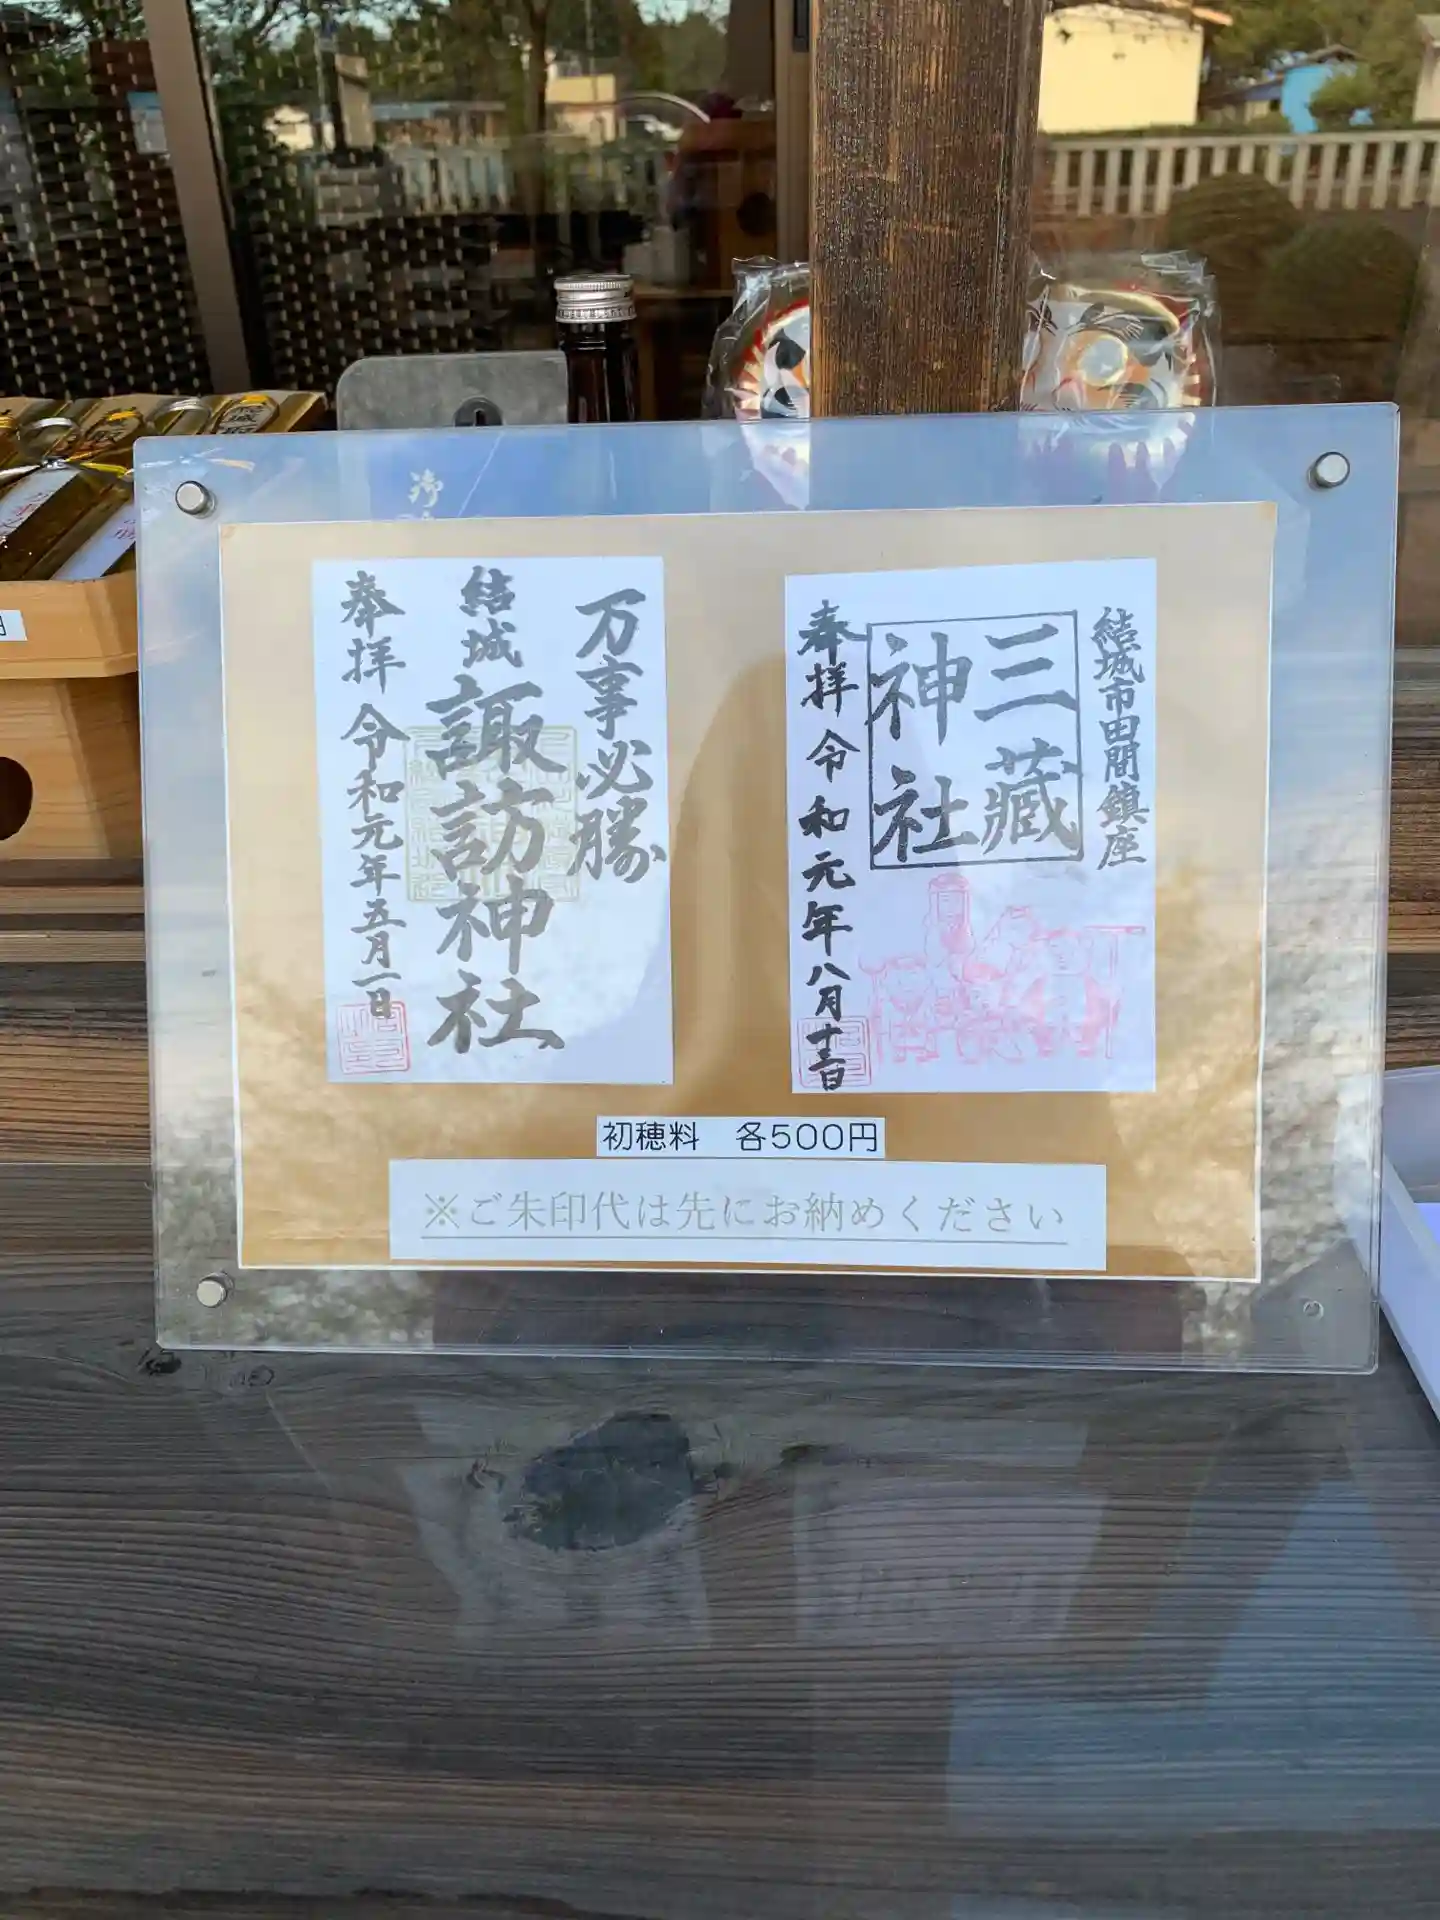 御
万事必勝
結城
諏訪神社
奉拝
令和元年五月一日
結城市田間鎮座
三蔵
神社
奉拝
令和元年八月十三日
初穂料　各500円
※ご朱印代は先にお納めください
円